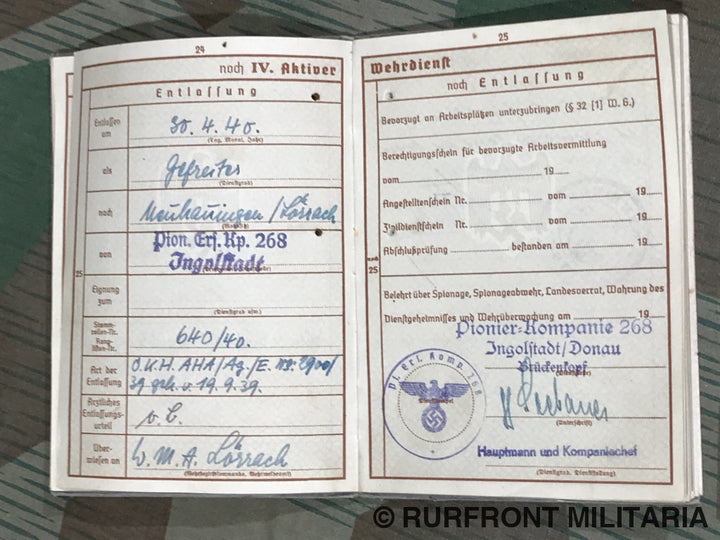 24
noch IV. Aktiver
Entlassung
Entlassen am
30. 4. 40.
(Tag, Monat, Jahr)
als
Gefreiter
(Dienstgrad)
nach
/Lörrach
von
Pion. Ers. Kp. 268
Ingolstadt
25
Eignung zum
(Dienstgrad usw.)
Stamm-
rollen-Nr.
Rang-
listen-Nr.
640/40.
Art der Entlassung
O.K.H. AHA/Ag./E.
39 geh. v. 19.9.39.
Ärztliches Entlassungs-
urteil
v. b.
Über-
wiesen an
W. M. A. Lörrach
(Wehrbezirkskommando, Wehrmeldeamt)
25
Wehrdienst
noch Entlassung
Bevorzugt an Arbeitsplätzen unterzubringen (§ 32 [1] W. G.)
Berechtigungsschein für bevorzugte Arbeitsvermittlung
vom 19
Angestelltenschein Nr. vom 19
Zivildienstschein Nr. vom 19
Abschlußprüfung bestanden am 19
noch
25
Belehrt über Spionage, Spionageabwehr, Landesverrat, Wahrung des
Dienstgeheimnisses und Wehrüberwachung am 19
Pionier-Kompanie 268
Ingolstadt/Donau
Brückenkopf
Pi. Ers. Komp. 268
(Unterschrift)
Hauptmann und Kompaniechef
(Dienstgrad, Dienststellung)
© RURFRONT MILITARIA